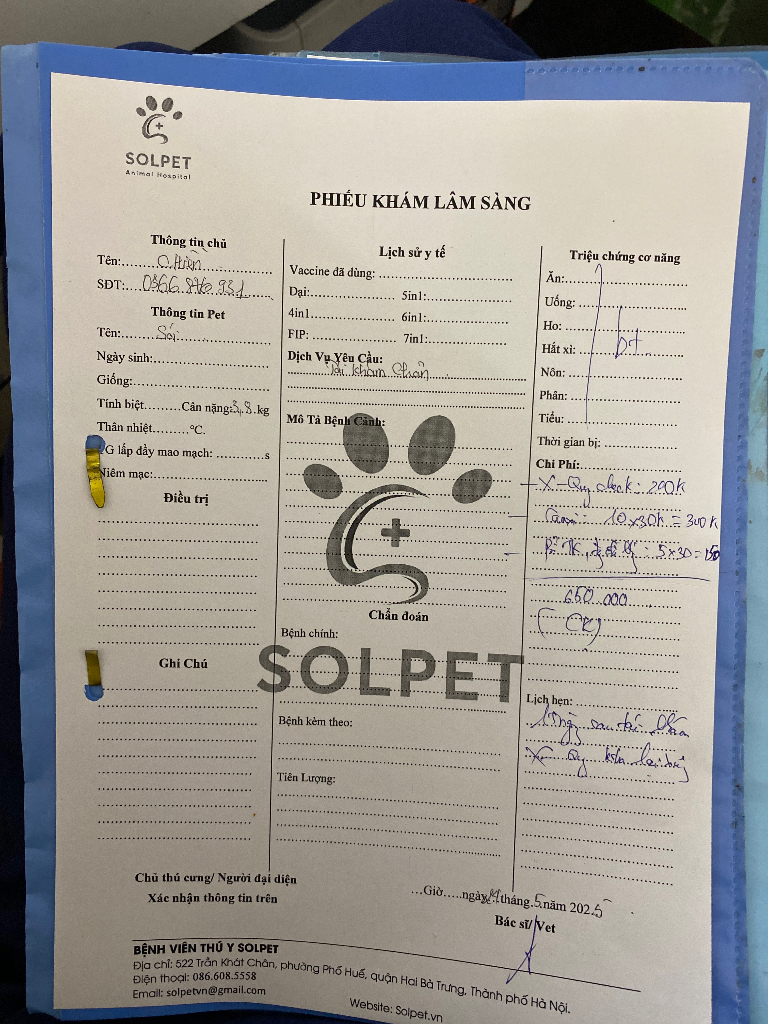 SOLPET
Animal Hospital
PHIẾU KHÁM LÂM SÀNG
Thông tin chủ
Tên: C. Hiền
SĐT: 0366.
Thông tin Pet
Tên: Sói
Ngày sinh:
Giống:
Tính biệt Cân nặng: 3,8 kg
Thân nhiệt °C.
TG lấp đầy mao mạch: s
Niêm mạc:
Điều trị
Ghi Chú
Lịch sử y tế
Vaccine đã dùng:
Dại: 5in1:
4in1 6in1:
FIP: 7in1:
Dịch Vụ Yêu Cầu:
Tái khám Chân
Mô Tả Bệnh Cảnh:
Chẩn đoán
Bệnh chính:
SOLPET
Bệnh kèm theo:
Tiên Lượng:
Triệu chứng cơ năng
Ăn:
Uống:
Ho:
Hắt xì:
bt
Nôn:
Phân:
Tiểu:
Thời gian bị:
Chi Phí:
- X-Quy check: 200K
- 10x30K = 300K
- 5x30 = 150
650.000
(CK)
Lịch hẹn:
ngày sau tái khám
X-Quy
Chủ thú cưng/ Người đại diện
Xác nhận thông tin trên
Giờ ngày tháng 5 năm 2025
Bác sĩ/ Vet
BỆNH VIỆN THÚ Y SOLPET
Địa chỉ: 522 Trần Khát Chân, phường Phố Huế, quận Hai Bà Trưng, Thành phố Hà Nội.
Điện thoại: 086.608.5558
Email: solpetvn@gmail.com
Website: Solpet.vn